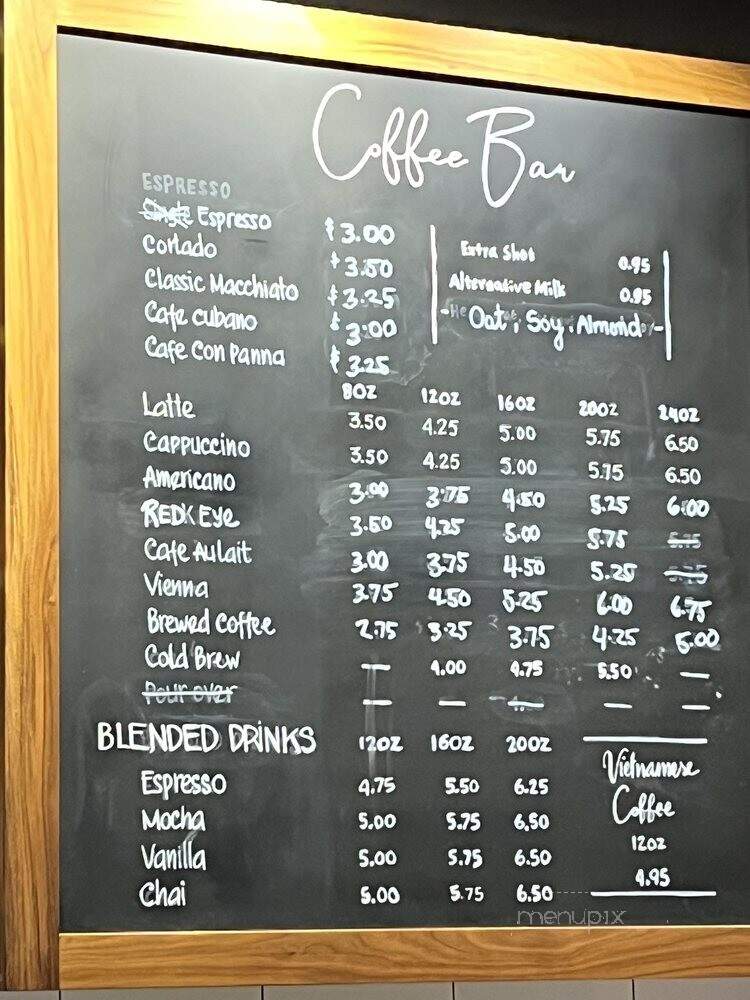 Coffee Bar
ESPRESSO
Single Espresso $3.00
Cortado $3.50
Classic Macchiato $3.25
Cafe cubano $3.00
Cafe Con Panna $3.25
Extra Shot 0.95
Alternative Milk 0.95
- Oat, Soy, Almond -
8OZ 12OZ 16OZ 20OZ 24OZ
Latte 3.50 4.25 5.00 5.75 6.50
Cappuccino 3.50 4.25 5.00 5.75 6.50
Americano 3.00 3.75 4.50 5.25 6.00
REDX EYE 3.50 4.25 5.00 5.75
Cafe Au lait 3.00 3.75 4.50 5.25
Vienna 3.75 4.50 5.25 6.00 6.75
Brewed Coffee 2.75 3.25 3.75 4.25 5.00
Cold Brew — 4.00 4.75 5.50 —
Pour over — — — — —
BLENDED DRINKS 12OZ 16OZ 20OZ
Espresso 4.75 5.50 6.25
Mocha 5.00 5.75 6.50
Vanilla 5.00 5.75 6.50
Chai 5.00 5.75 6.50
Vietnamese
Coffee
12OZ
4.95
menupix